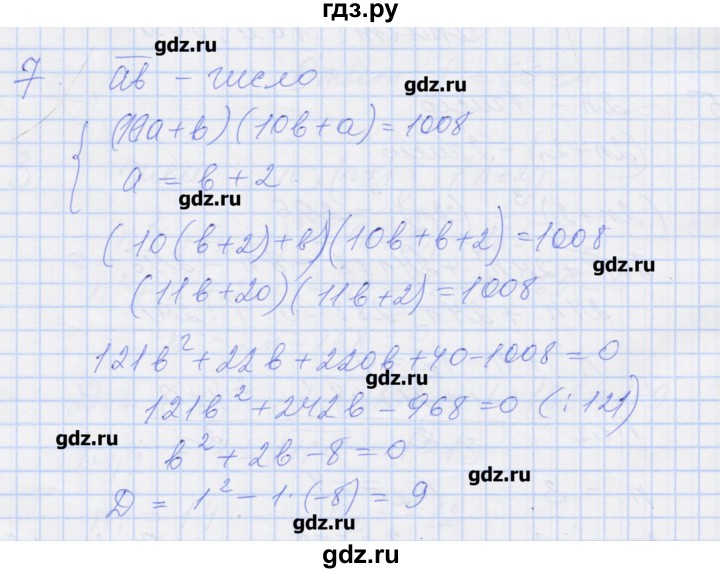 гдз.ру
gdz.ru
7 ab – число
gdz.ru
(10a + b)(10b + a) = 1008
a = b + 2
gdz.ru
(10(b+2)+b)(10b+b+2) = 1008
gdz.ru
(11b+20)(11b+2) = 1008
121b² + 22b + 220b + 40 - 1008 = 0
gdz.ru
121b² + 242b - 968 = 0 (:121)
gdz.ru
b² + 2b - 8 = 0
gdz.ru
D = 1² - 1·(-8) = 9
gdz.ru
gdz.ru